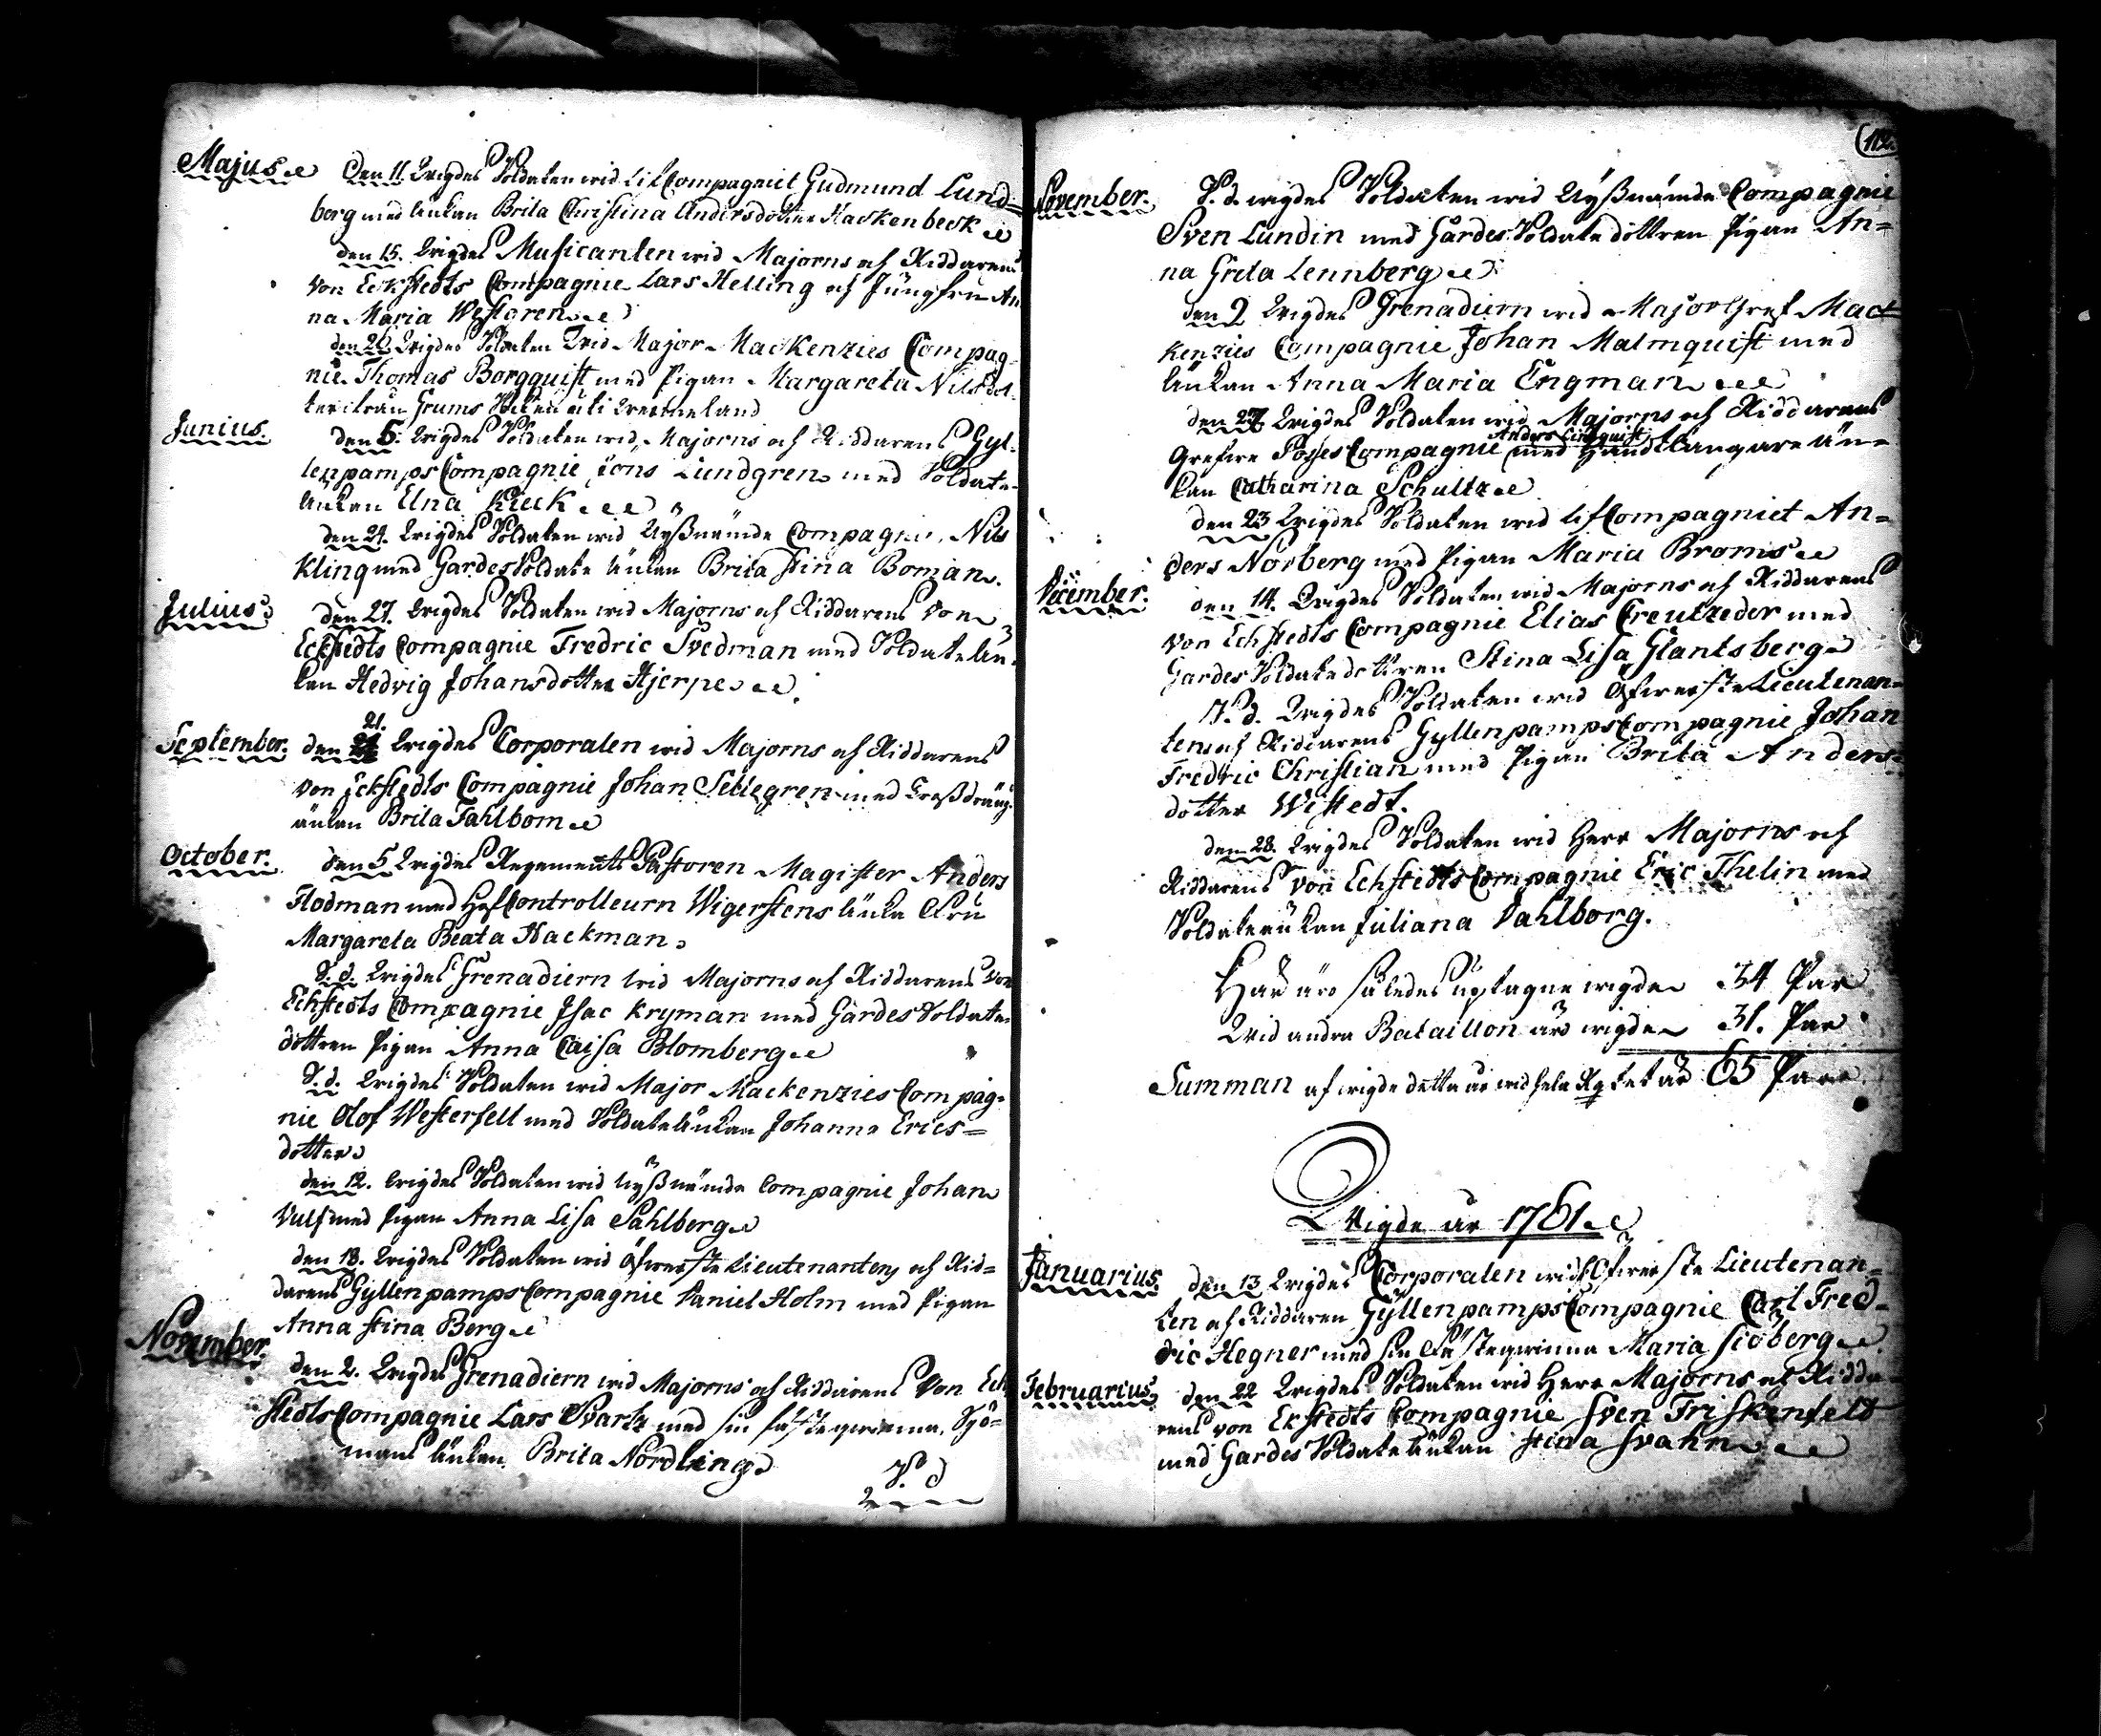 Majus
Den 11. Wigdes Soldaten wid Lif Compagniet Gudmund Lund=
berg med änkan Brita Christina Andersdotter Hackenbeck
den 15. Wigdes Musicanten wid Majorns och Riddarens
von Eckstedts Compagnie Lars Helling och Jungfru An
na Maria Westoren
den 26 Wigdes Soldaten wid Major Mackenzies Compag-
nie Thomas Borgquist med Pigan Margareta Nils dot-
ter ifrån Grums uti Wermeland
Junius.
den 5. Wigdes Soldaten wid Majorns och Riddarens Gyl-
lenpamps Compagnie Jöns Lundgren med Soldate-
änkan Elna Kieck
den 24. Wigdes Soldaten wid Nyßnämde Compagnie, Nils
Kling med Gardes Soldate änkan Brita Stina Boman.
Julius
den 27. Wigdes Soldaten wid Majorns och Riddarens von
Eckstedts Compagnie Fredric Svedman med Soldate än-
kan Hedvig Johansdotter Hjerpe
September.
den 21. Wigdes Corporalen wid Majorns och Riddarens
von Eckstedts Compagnie Johan Sellegren med Troßdräng
änkan Brita Fahlbom
October.
den 5 Wigdes Regements Pastoren Magister Anders
Flodman med Hof Controlleurn Wigerstens änka Fru
Margareta Beata Hackman
S. d. Wigdes Grenadiern wid Majorns och Riddarens von
Echstedts Compagnie Isac Kryman med Gardes Soldate
dottren Pigan Anna Caisa Blomberg
S. d. Wigdes Soldaten wid Major Mackenzies Compag-
nie Olof Westerfell med Soldate änkan Johanna Erics=
dotter
den 12. Wigdes Soldaten wid Nyßnämde Compagnie Johan
Vulf med Pigan Anna Lisa Sahlberg
den 18. Wigdes Soldaten wid Öfwerste Lieutenantens och Rid=
darens Gyllenpamps Compagnie Daniel Holm med Pigan
Anna Stina Berg
November.
den 2. Wigdes Grenadiern wid Majorns och Riddarens von Ech
stedts Compagnie Lars Svartz med sin fästeqwinna, Sjö-
mans änkan Brita Nordling
S. d
112.
November.
S. d. wigdes Soldaten wid Nyßnämde Compagnie
Sven Lundin med Gardes Soldate dottren Pigan An=
na Greta Lennberg
den 9 Wigdes Grenadiern wid Major Gref Mac=
kenzies Compagnie Johan Malmquist med
änkan Anna Maria Engman
den 27 Wigdes Soldaten wid Majorns och Riddarens
Grefwe Posses Compagnie Anders Lindquist med Handtlangare än=
kan Catharina Schultz
den 23 Wigdes Soldaten wid Lif Compagniet An=
ders Norberg med Pigan Maria Broms
December.
den 14. Wigdes Soldaten wid Majorns och Riddarens
von Echstedts Compagnie Elias Creutzeder med
Gardes Soldate dottren Stina Lisa Glantsberg
S. d. Wigdes Soldaten wid Öfwerste Lieutenan=
tens och Riddarens Gyllenpamps Compagnie Johan
Fredric Christian med Pigan Brita Anders=
dotter Wistedt.
den 28. Wigdes Soldaten wid Herr Majorns och
Riddarens von Echstedts Compagnie Eric Thelin med
Soldate änkan Juliana Dahlborg.
Här äro således uptagne wigde 34 Par
Wid andra Bataillon äro wigde 31. Par
Summan af wigde detta år wid hela Rg:tet är 65 Par
Wigde år 1761.
Januarius
den 13 Wigdes Corporalen wid Öfwerste Lieutenan=
ten och Riddaren Gyllenpamps Compagnie Carl Fred-
ric Hegner med sin Fästeqwinna Maria Siöberg
Februarius
den 22 Wigdes Soldaten wid Herr Majorns och Ridda-
rens von Eckstedts Compagnie Sven Friskenfelt
med Gardes Soldate änkan Stina Svahn